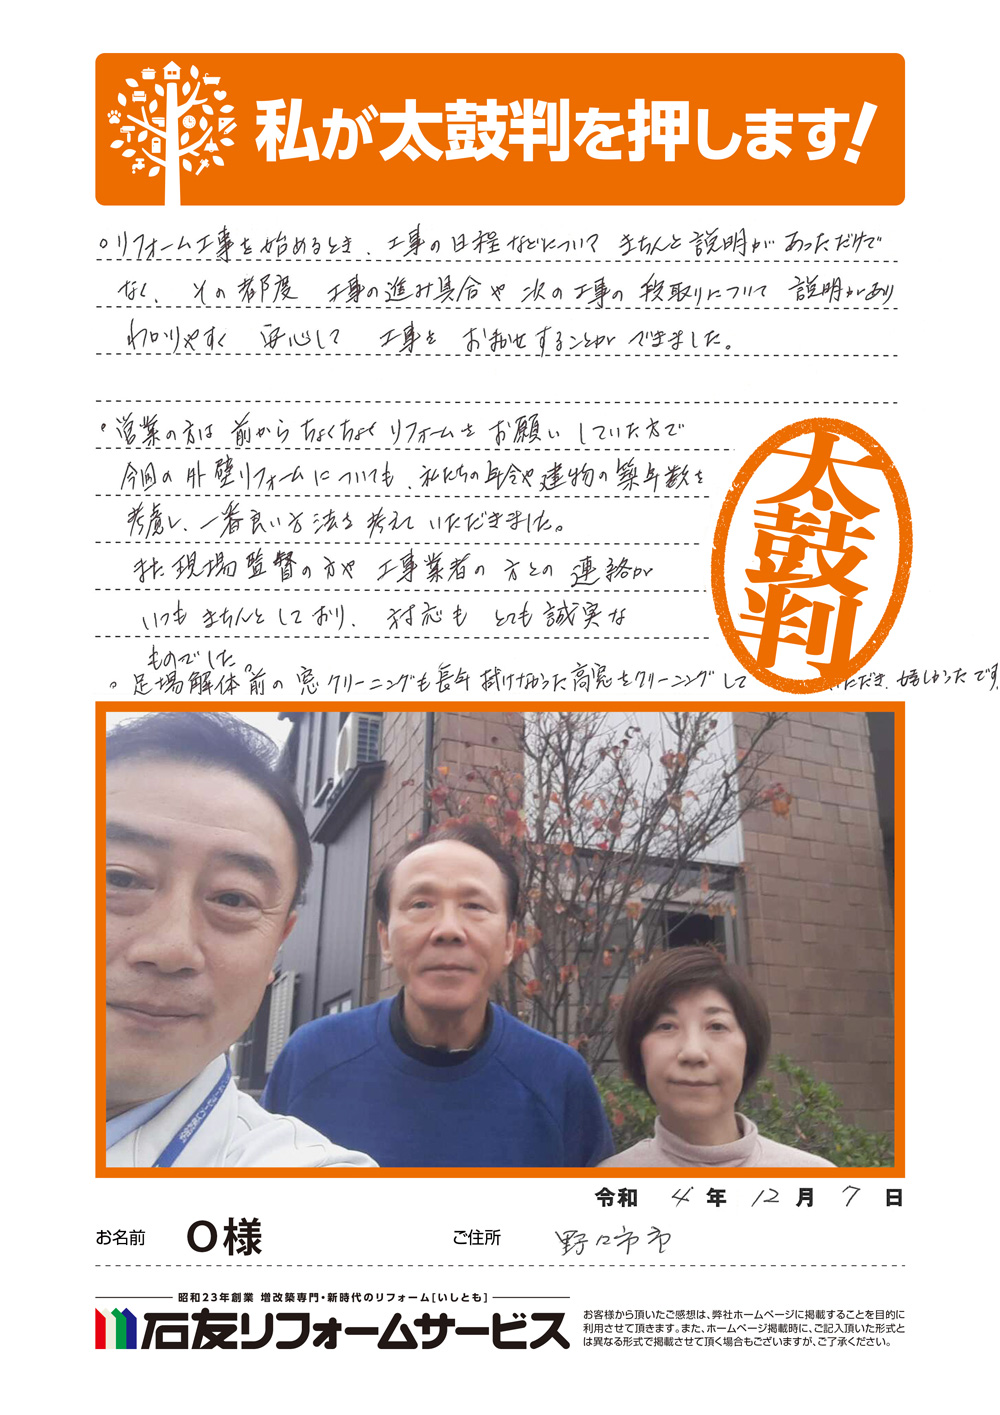 私が太鼓判を押します!
○リフォーム工事を始めるとき、工事の日程などについて きちんと説明があっただけで
なく、その都度 工事の進み具合や次の工事の段取りについて 説明があり
わかりやすく 安心して 工事を おまかせすることができました。
○営業の方は 前からちょくちょく リフォームを お願い していた方で
今回の外壁リフォームについても、私たちの年令や建物の築年数を
考慮し、一番良い方法を考えて いただきました。
また現場監督の方や 工事業者の 方との 連絡が
いつも きちんとしており、 対応も とても誠実な
ものでした。
○足場解体前の窓クリーニングも長年拭けなかった高窓をクリーニングして いただき、嬉しかったです
太鼓判
令和 4 年 12 月 7 日
お名前 O様 ご住所 野々市市
昭和23年創業 増改築専門・新時代のリフォーム[いしとも]
石友リフォームサービス
お客様から頂いたご感想は、弊社ホームページに掲載することを目的に
利用させて頂きます。また、ホームページ掲載時に、ご記入頂いた形式と
は異なる形式で掲載させて頂く場合もございますが、ご了承ください。